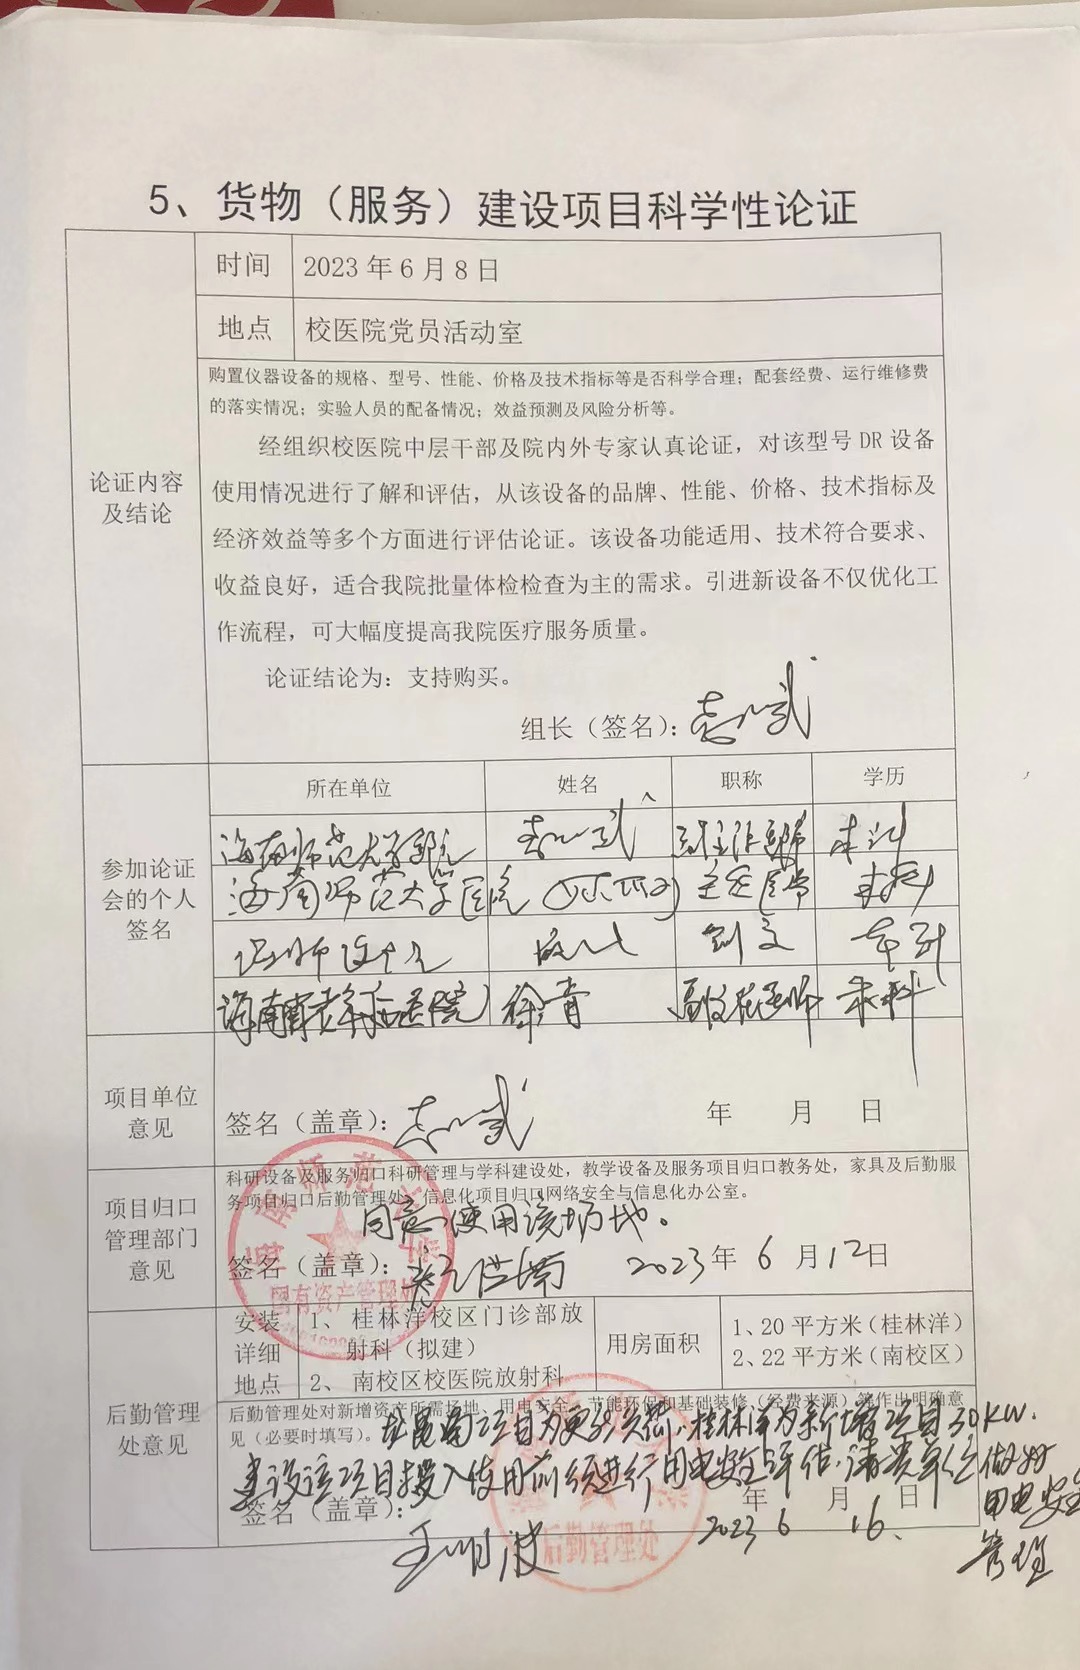 5、货物（服务）建设项目科学性论证
时间 2023年6月8日
地点 校医院党员活动室
购置仪器设备的规格、型号、性能、价格及技术指标等是否科学合理；配套经费、运行维修费
的落实情况；实验人员的配备情况；效益预测及风险分析等。
经组织校医院中层干部及院内外专家认真论证，对该型号DR设备
论证内容
及结论
使用情况进行了解和评估，从该设备的品牌、性能、价格、技术指标及
经济效益等多个方面进行评估论证。该设备功能适用、技术符合要求、
收益良好，适合我院批量体检检查为主的需求。引进新设备不仅优化工
作流程，可大幅度提高我院医疗服务质量。
论证结论为：支持购买。
组长（签名）：
参加论证
会的个人
签名
所在单位 姓名 职称 学历
海南师范大学医院
海南师范大学医院 主任医师 本科
徐青 本科
项目单位
意见
签名（盖章）： 年 月 日
项目归口
管理部门
意见
科研设备及服务归口科研管理与学科建设处，教学设备及服务项目归口教务处，家具及后勤服
务项目归口后勤管理处，信息化项目归口网络安全与信息化办公室。
同意使用该场地。
签名（盖章）： 2023年6月12日
国有资产管理处
后勤管理
处意见
安装
详细
地点
1、桂林洋校区门诊部放
射科（拟建）
2、南校区校医院放射科
用房面积
1、20平方米（桂林洋）
2、22平方米（南校区）
后勤管理处对新增资产所需场地、用电安全、节能环保和基础装修（经费来源）等作出明确意
见（必要时填写）。
项目为更新负荷，桂林洋为新增项目30KW.
建议该项目投入使用前须进行用电安全评估，请贵单位做好
用电安全
管理
签名（盖章）： 年 月 日
2023 6 16.
后勤管理处